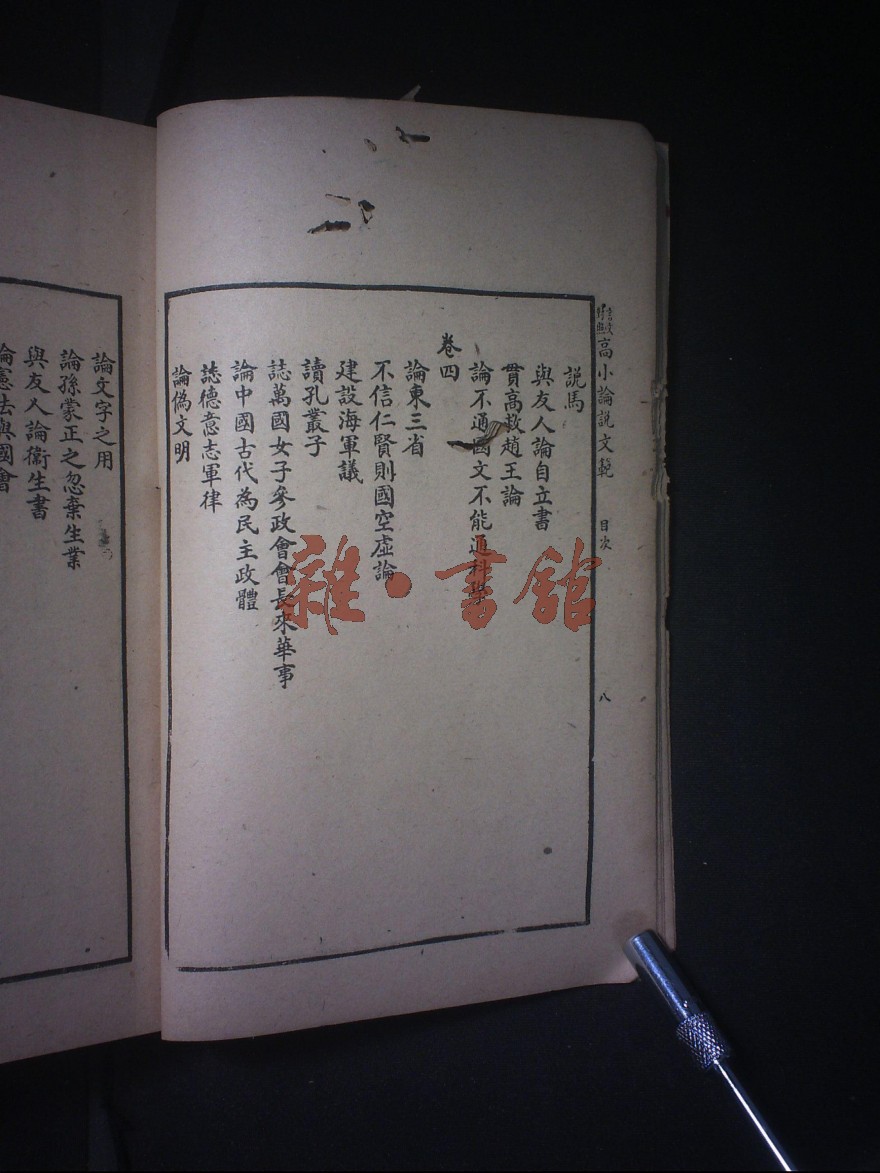 高小論説文範 目次 八
説馬
與友人論自立書
貫高救趙王論
論不通國文不能通科學
卷四
論東三省
不信仁賢則國空虛論
建設海軍議
讀孔叢子
誌萬國女子參政會會長來華事
論中國古代為民主政體
誌德意志軍律
論偽文明
論文字之用
論孫蒙正之忽棄生業
與友人論衞生書
論憲法與國會
雜·書館